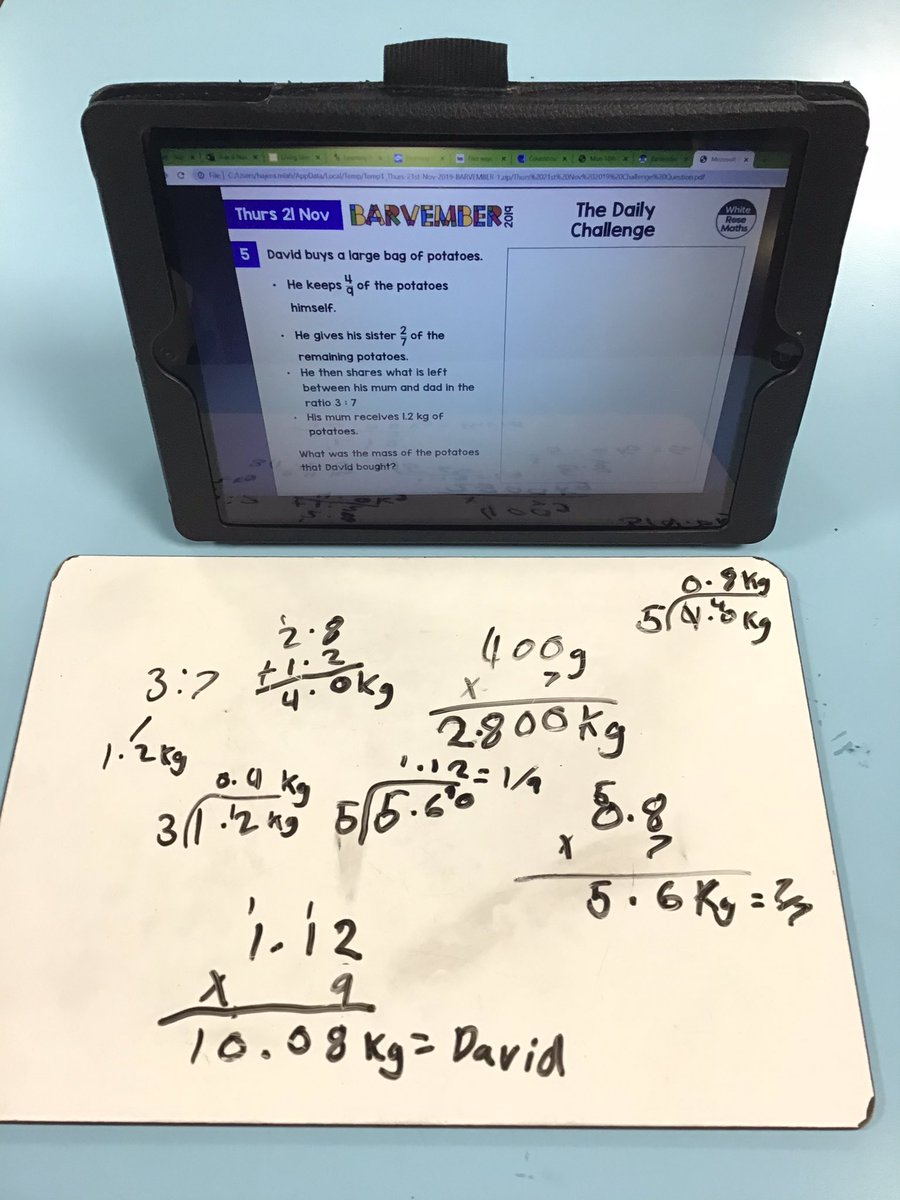 File | C:/Users/hajera.miah/AppData/Local/Temp/Temp1_Thurs-21st-Nov-2019-BARVEMBER-1.zip/Thurs%2021st%20Nov%202019%20Challenge%20Question.pdf
Thurs 21 Nov
BARVEMBER 2019
The Daily
Challenge
White
Rose
Maths
5 David buys a large bag of potatoes.
• He keeps 4/9 of the potatoes
himself.
• He gives his sister 2/7 of the
remaining potatoes.
• He then shares what is left
between his mum and dad in the
ratio 3 : 7
• His mum receives 1.2 kg of
potatoes.
What was the mass of the potatoes
that David bought?
3:7
1.2kg
2.8
+1.2
4.0kg
400g
x 7
2.800kg
0.8kg
5 4.40kg
0.4 kg
3 1.12kg
1.12 = 1/9
5 5.610
0.8
x 7
5.6kg = 7/7
1.12
x 9
10.08kg = David